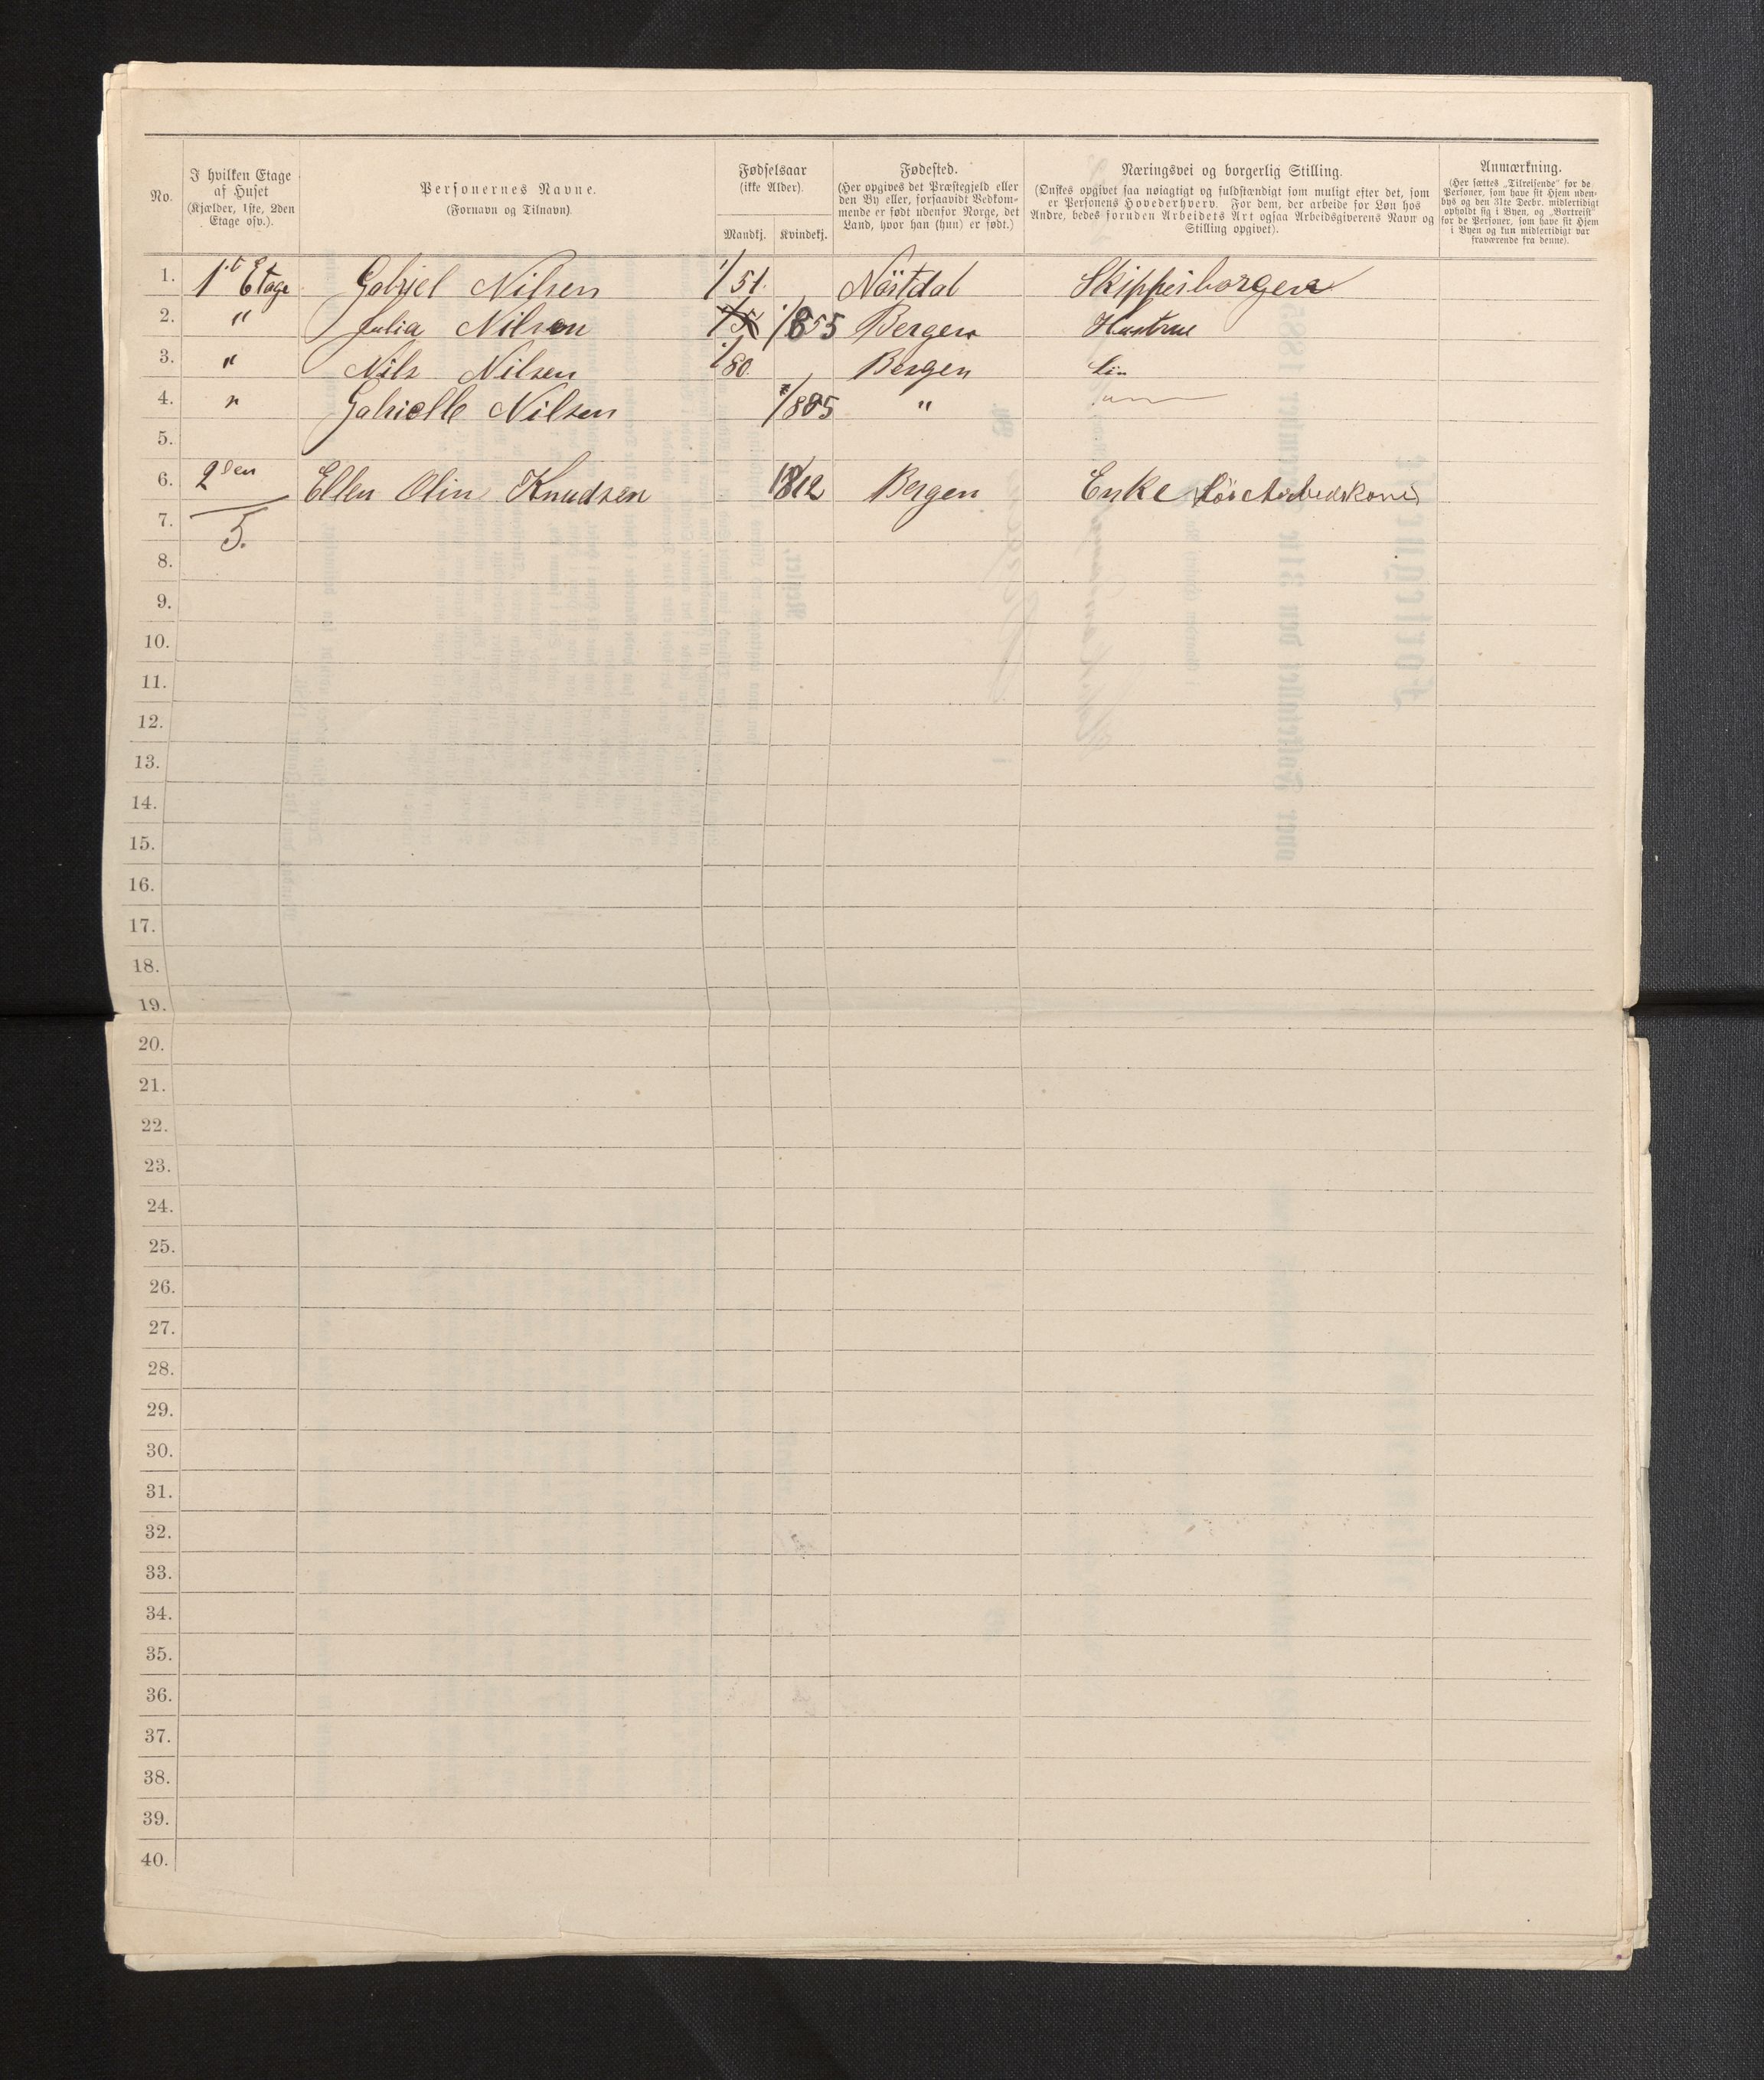 No.
I hvilken Etage af Huset (Kjælder, 1ste, 2den Etage osv.).
Personernes Navne. (Fornavn og Tilnavn)
Fødselsaar (ikke Alder).
Mandkj. Kvindekj.
Fødested. (Her opgives det Præstegjeld eller den By eller, forsaavidt Vedkommende er født udenfor Norge, det Land, hvor han (hun) er født.)
Næringsvei og borgerlig Stilling. (Ønskes opgivet saa nøiagtigt og fuldstændigt som muligt efter det, som er Personens Hovederhverv. For dem, der arbeide for Løn hos Andre, bedes foruden Arbeidets Art ogsaa Arbeidsgiverens Navn og Stilling opgivet).
Anmærkning. (Her sættes „Tilreisende" for de Personer, som have sit Hjem udenbys og den 31te Decbr. midlertidigt opholdt sig i Byen, og „Bortreist" for de Personer, som have sit Hjem i Byen og kun midlertidigt var fraværende fra denne).
1. 1st Etage Gabriel Nilsen 1/51. Skipperborger
2. " Julia Nilsen 1/855 Bergen Hustrue
3. " Nils Nilsen 1/80. Bergen
4. " Gabrielle Nilsen /885 "
5.
6. 2den Ellen Olin Knudsen 1812 Bergen Enke
7. 5.
8.
9.
10.
11.
12.
13.
14.
15.
16.
17.
18.
19.
20.
21.
22.
23.
24.
25.
26.
27.
28.
29.
30.
31.
32.
33.
34.
35.
36.
37.
38.
39.
40.